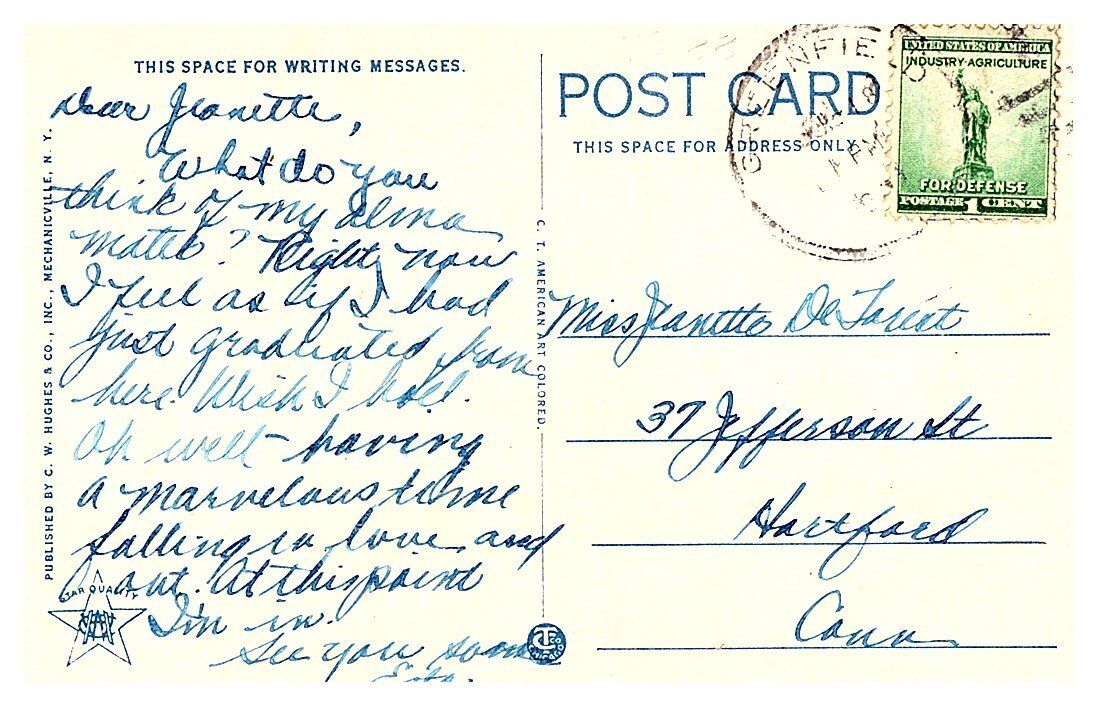 THIS SPACE FOR WRITING MESSAGES.
Dear Jeanette,
What do you
think of my alma
mater? Right now
I feel as if I had
just graduated from
here. Wish I had.
Oh well - having
a marvelous time
falling in love and
out. At this point
I'm in.
See you soon
PUBLISHED BY C. W. HUGHES & CO., INC., MECHANICVILLE, N. Y.
STAR QUALITY
C. T. AMERICAN ART COLORED.
POST CARD
THIS SPACE FOR ADDRESS ONLY
GREENFIELD
UNITED STATES OF AMERICA
INDUSTRY-AGRICULTURE
FOR DEFENSE
POSTAGE 1 CENT
Miss Jeanette
37 Jefferson St
Hartford
Conn